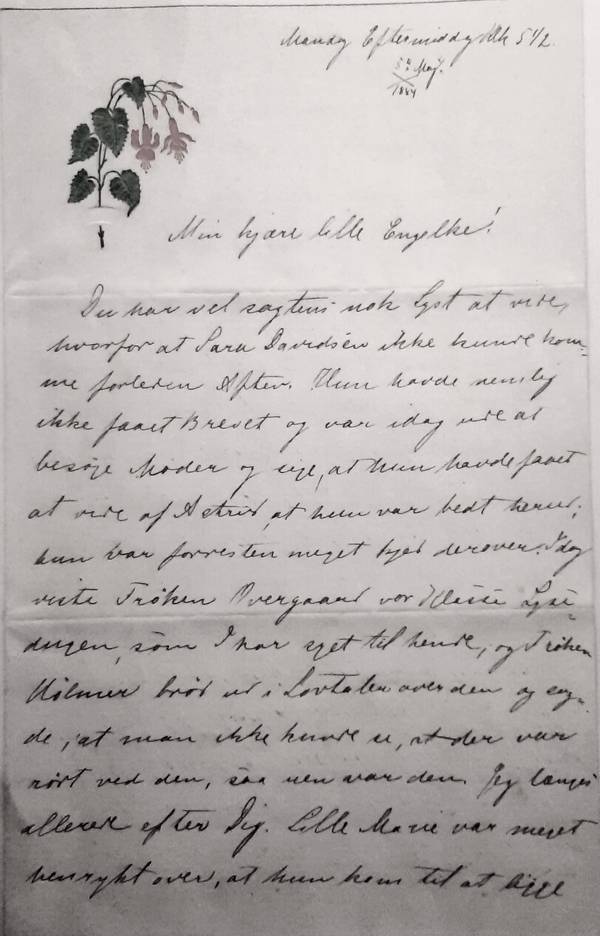 Mandg Eftermiddg Klk 5 1/2.
5te Maj.
1884
Min kjære lille Engelke!
Du har vel sagtens nok Lyst at vide,
hvorfor at Sara Davidsen ikke kunde kom-
me forleden Aften. Hun havde nemlig
ikke faaet Brevet og var idag ude at
besøge Moder og sige, at hun havde faaet
at vide af Astrid, at hun var bedt herud;
hun var forresten meget kjed derover. Idag
viste Frøken Overgaard vor Klasse Lyse-
dugen, som I har syet til hende, og Frøken
Hilmer brød ud i Lovtaler over den og sag-
de, at man ikke kunde se, at der var
rørt ved den, saa pen var den. Jeg længes
allerede efter Dig. Lille Marie var meget
henrykt over, at hun kom til at ligge